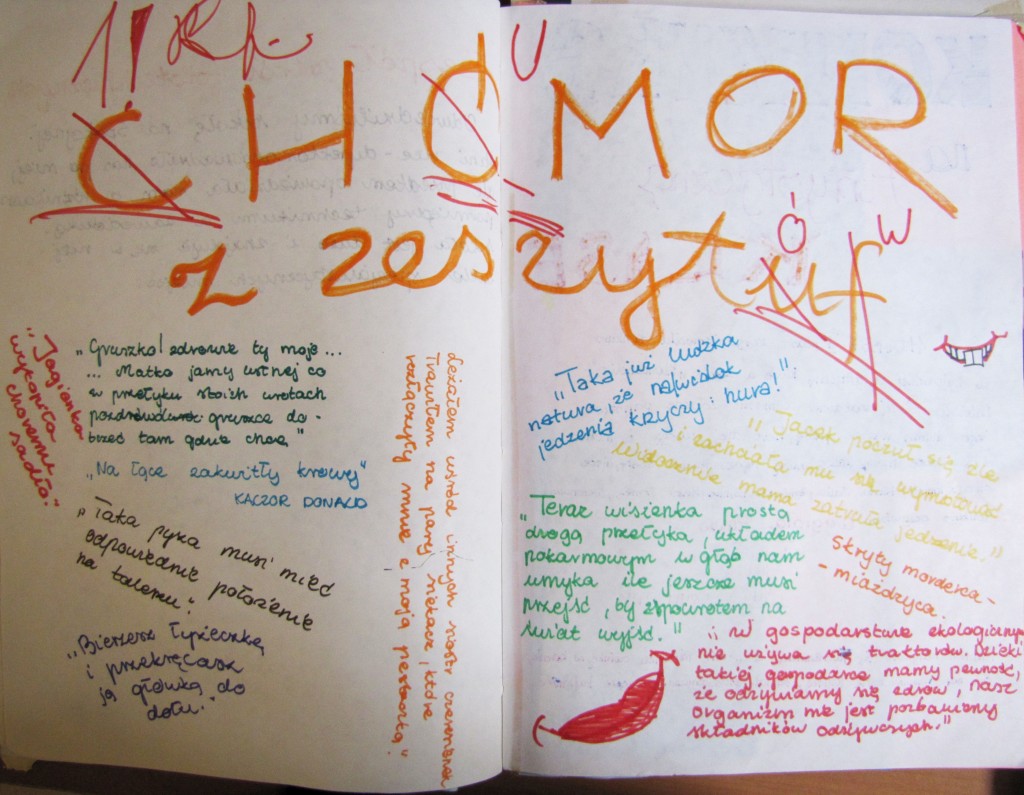 CHOMOR
U
z zeszytuf
Ó W
„Jagienka
wykopiła
choremu
sadło."
„Gruszko! zdrowie ty moje...
... Matko jamy ustnej co
w przełyku stoisz wrotach
gruszce do-
brzeć tam gdzie chce"
„Na łące zakwitły krowy"
KACZOR DONALD
„Taka pyka musi mieć
odpowiednie położenie
na talerzu".
„Bierzesz łyżeczkę
i przekręcasz
ją główką do
dołu."
Leżałem wśród innych sióstr czereśniowych
Trawiłem na parę siekacze, które
rozłączyły mnie z moją pestką."
„Taka już ludzka
natura, że na widok
jedzenia krzyczy: hura!"
„Jacek poczuł się źle
i zachciało mu się wymiotować
Widocznie mama zatruła jedzenie."
„Teraz wisienka prostą
drogą przełyka, układem
pokarmowym w głąb nam
umyka ile jeszcze musi
przejść, by zspowrotem na
świat wyjść."
Skryty morderca -
- miażdżyca.
„W gospodarstwie ekologicznym
nie używa się traktorów. Dzięki
takiej gospodarce mamy pewność,
że odżywiamy się zdrów, nasz
organizm nie jest pozbawiony
składników odżywczych."